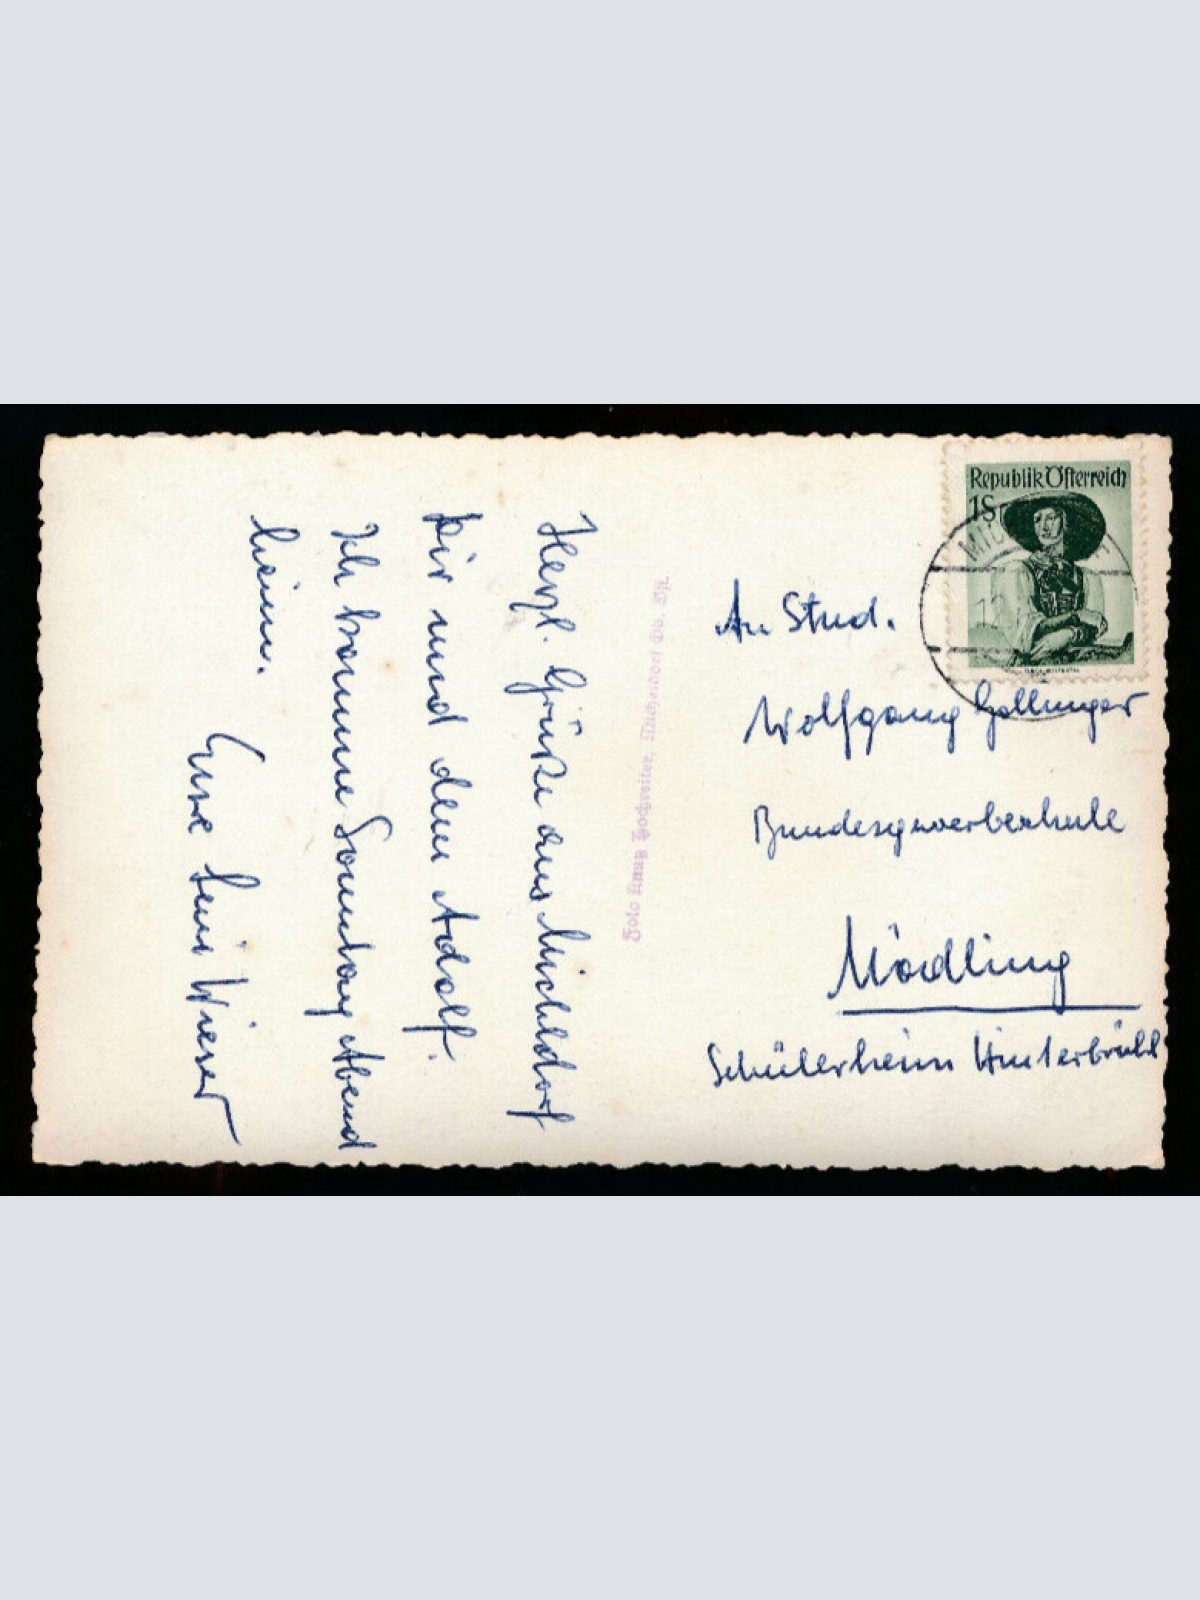 Herzl. Grüße aus Micheldorf
Dir und dem Adolf.
Ich komme Sonntag Abend
heim.
Euer Wieser
Foto Hochreiter, Micheldorf Ob. Öst.
Republik Österreich
1S
An Stud.
Wolfgang Hollinger
Bundesgewerbeschule
Mödling
Schülerheim Hinterbrühl